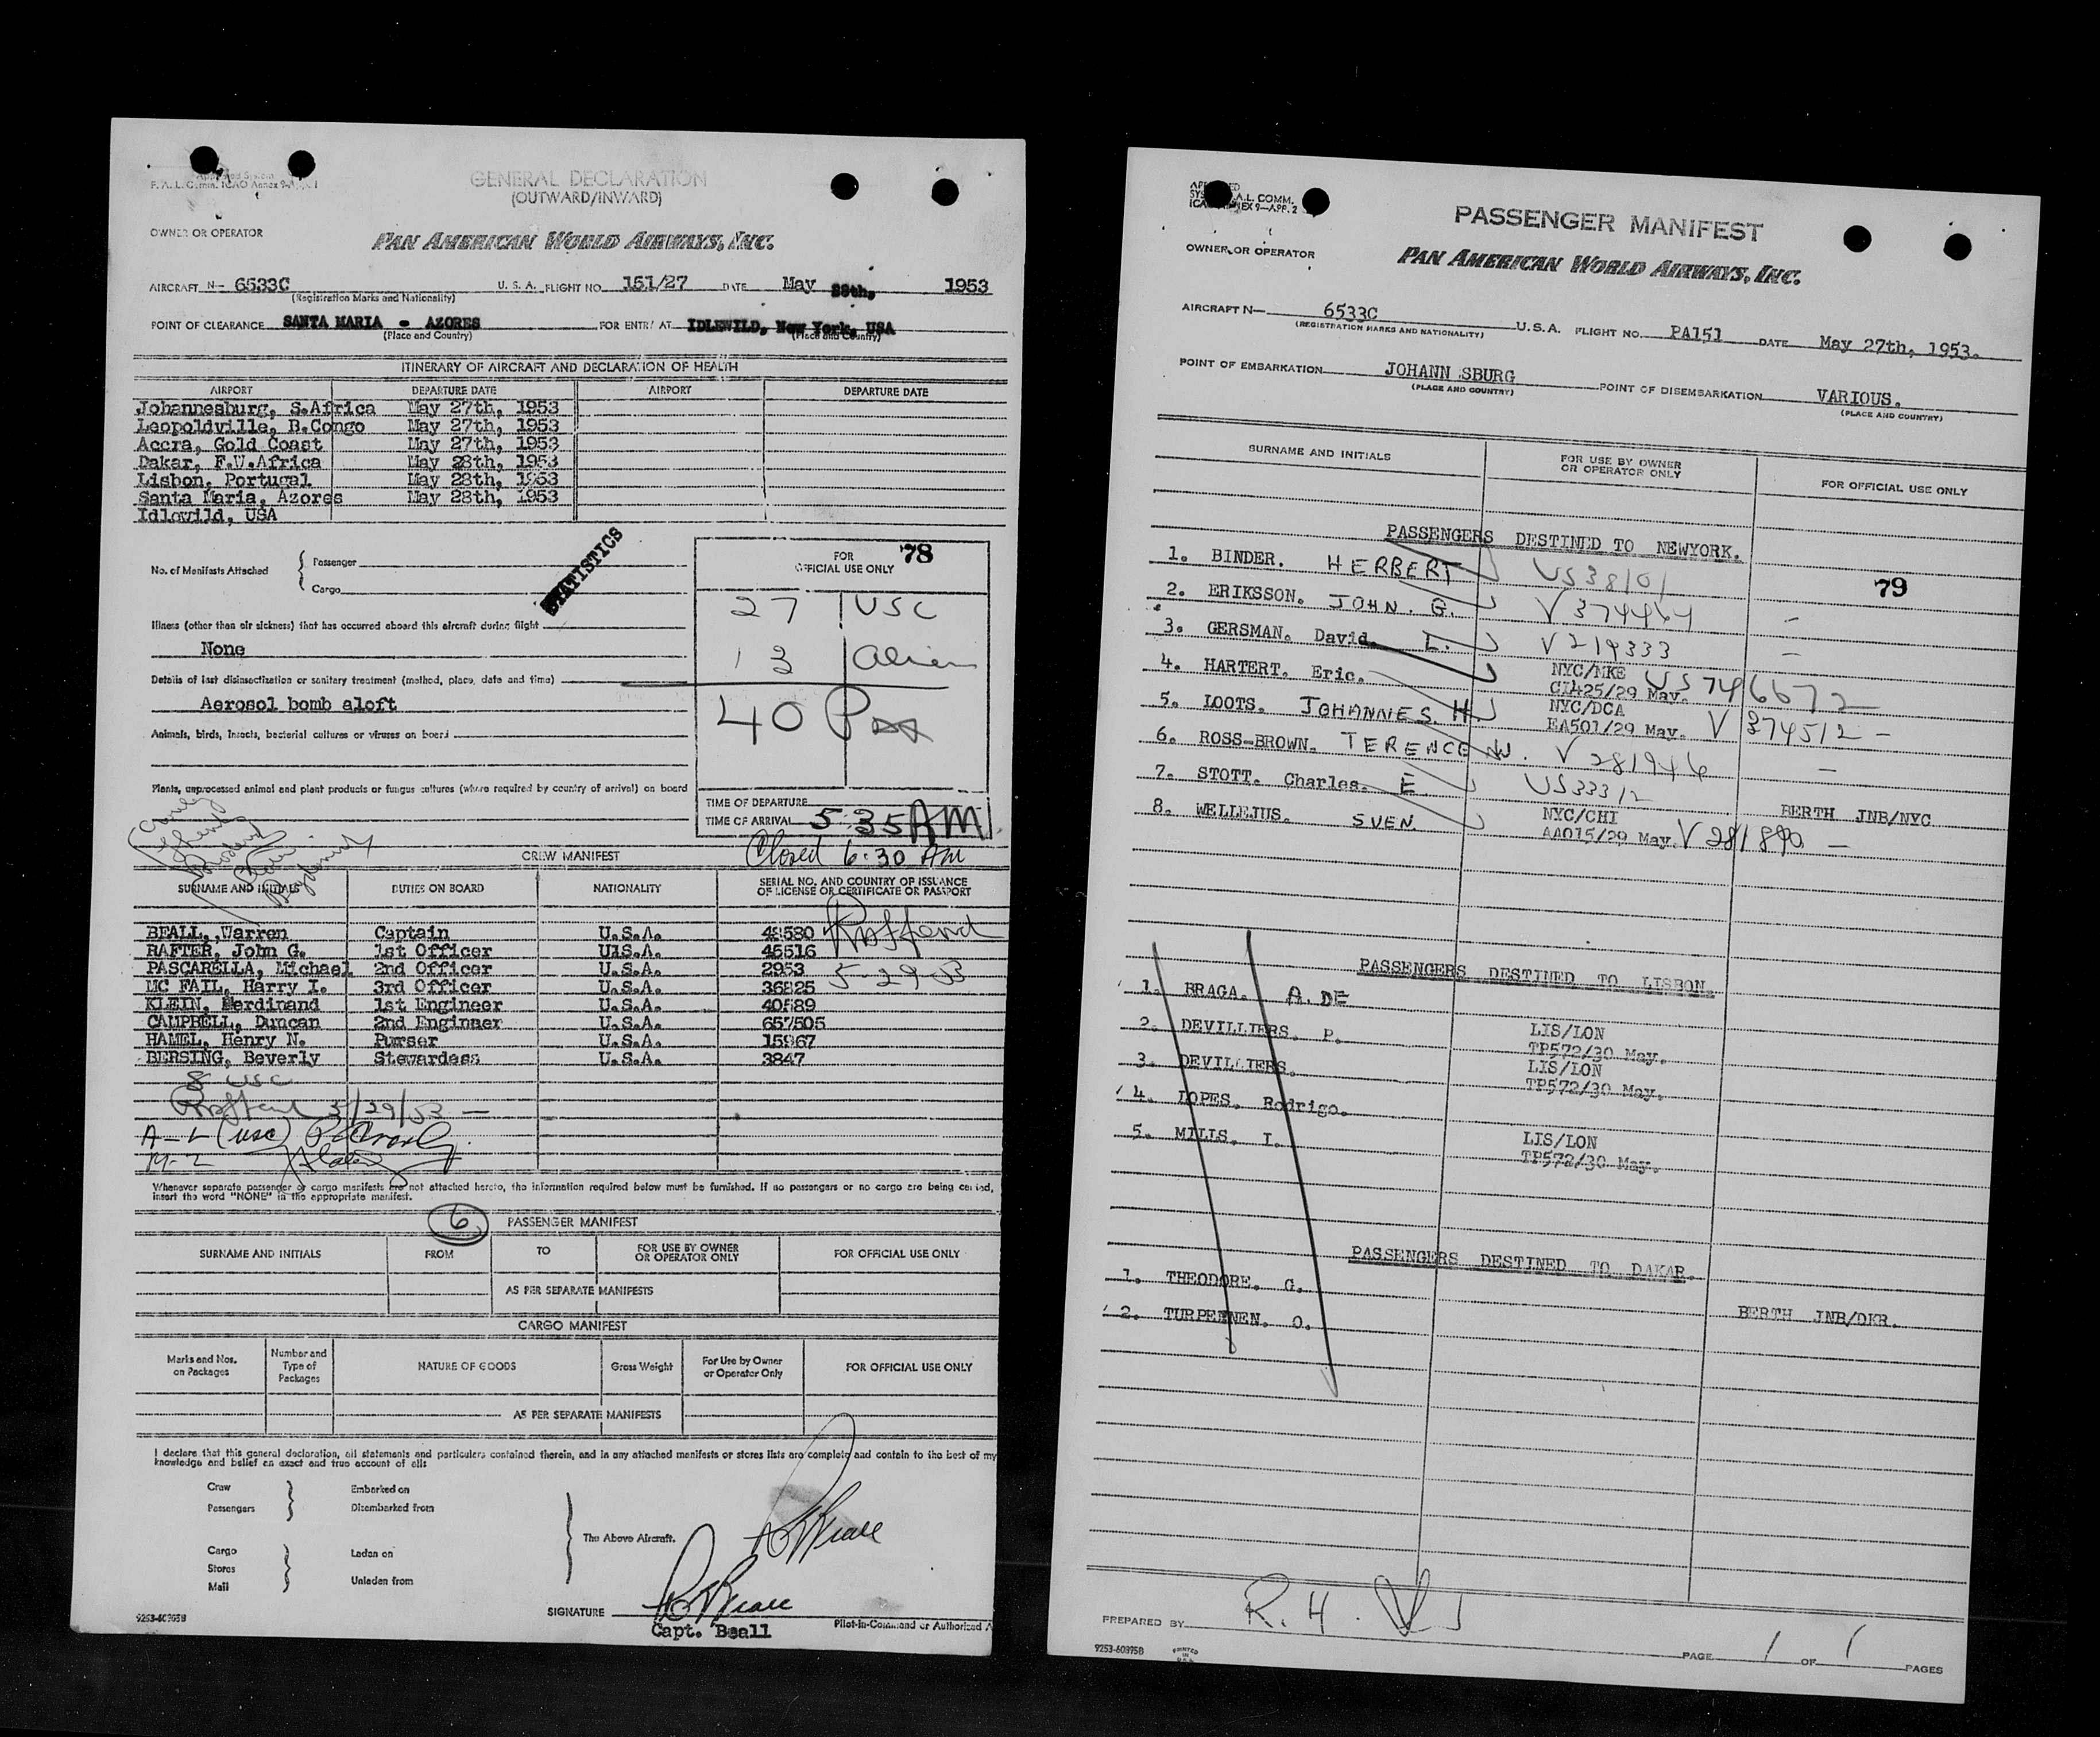 Approved System
F. A. L. Comm. ICAO Annex 9
GENERAL DECLARATION
(OUTWARD/INWARD)
OWNER OR OPERATOR
PAN AMERICAN WORLD AIRWAYS, INC.
AIRCRAFT N- 6533C U. S. A. FLIGHT NO. 151/27 DATE May 28th, 1953
(Registration Marks and Nationality)
POINT OF CLEARANCE SANTA MARIA - AZORES FOR ENTRY AT IDLEWILD, New York, USA
(Place and Country) (Place and Country)
ITINERARY OF AIRCRAFT AND DECLARATION OF HEALTH
AIRPORT DEPARTURE DATE AIRPORT DEPARTURE DATE
Johannesburg, S.Africa May 27th, 1953
Leopoldville, B.Congo May 27th, 1953
Accra, Gold Coast May 27th, 1953
Dakar, F.W.Africa May 28th, 1953
Lisbon, Portugal May 28th, 1953
Santa Maria, Azores May 28th, 1953
Idlewild, USA
STATISTICS
No. of Manifests Attached { Passenger
Cargo
FOR 78
OFFICIAL USE ONLY
27 USC
13 alien
40 Pax
Illness (other than air sickness) that has occurred aboard this aircraft during flight
None
Details of last disinsectization or sanitary treatment (method, place, date and time)
Aerosol bomb aloft
Animals, birds, insects, bacterial cultures or viruses on board
Plants, unprocessed animal and plant products or fungus cultures (where required by country of arrival) on board
TIME OF DEPARTURE
TIME OF ARRIVAL 5:35 AM
Closed 6:30 AM
CREW MANIFEST
SURNAME AND INITIALS DUTIES ON BOARD NATIONALITY SERIAL NO. AND COUNTRY OF ISSUANCE OF LICENSE OR CERTIFICATE OR PASSPORT
BEALL, Warren Captain U.S.A. 48580
RAFTER, John G. 1st Officer U1S.A. 45516
PASCARELLA, Michael 2nd Officer U.S.A. 2953
5-29-53
MC FAIL, Harry I. 3rd Officer U.S.A. 36825
KLEIN, Ferdinand 1st Engineer U.S.A. 40589
CAMPBELL, Duncan 2nd Engineer U.S.A. 657505
HAMEL, Henry N. Purser U.S.A. 15967
BERSING, Beverly Stewardess U.S.A. 3847
8 USC
5/29/53
A-L (USC)
M-2
Whenever separate passenger or cargo manifests are not attached hereto, the information required below must be furnished. If no passengers or no cargo are being carried,
insert the word "NONE" in the appropriate manifest.
6
PASSENGER MANIFEST
SURNAME AND INITIALS FROM TO FOR USE BY OWNER OR OPERATOR ONLY FOR OFFICIAL USE ONLY
AS PER SEPARATE MANIFESTS
CARGO MANIFEST
Marks and Nos. on Packages Number and Type of Packages NATURE OF GOODS Gross Weight For Use by Owner or Operator Only FOR OFFICIAL USE ONLY
AS PER SEPARATE MANIFESTS
I declare that this general declaration, all statements and particulars contained therein, and in any attached manifests or stores lists are complete and contain to the best of my
knowledge and belief an exact and true account of all:
Crew Embarked on
Passengers Disembarked from
The Above Aircraft.
Cargo Laden on
Stores
Mail Unladen from
SIGNATURE
Capt. Beall Pilot-in-Command or Authorized A
9253-60395B
SYS F.A.L. COMM.
ICAO ANNEX 9-APP. 2
PASSENGER MANIFEST
OWNER OR OPERATOR PAN AMERICAN WORLD AIRWAYS, INC.
AIRCRAFT N- 6533C U.S.A. FLIGHT NO. PA151 DATE May 27th, 1953.
(REGISTRATION MARKS AND NATIONALITY)
POINT OF EMBARKATION JOHANN SBURG POINT OF DISEMBARKATION VARIOUS.
(PLACE AND COUNTRY) (PLACE AND COUNTRY)
SURNAME AND INITIALS FOR USE BY OWNER OR OPERATOR ONLY FOR OFFICIAL USE ONLY
PASSENGERS DESTINED TO NEWYORK.
79
1. BINDER. HERBERT US38101
2. ERIKSSON. JOHN. G. V 374464 -
3. GERSMAN. David. L. V 219333 -
4. HARTERT. Eric. NYC/MKE US 746672
CI425/29 May.
5. LOOTS. JOHANNES H. NYC/DCA
EA501/29 May. V 374512 -
6. ROSS-BROWN. TERENCE W. V 281946 -
7. STOTT. Charles. E US33312 BERTH JNB/NYC
8. WELLEJUS. SVEN NYC/CHI
AA015/29 May. V 281890 -
PASSENGERS DESTINED TO LISBON.
1. BRAGA. A. DE
2. DEVILLIERS. P. LIS/LON
TP572/30 May.
3. DEVILLIERS. LIS/LON
TP572/30 May.
4. LOPES. Rodrigo.
5. MILLS. I. LIS/LON
TP572/30 May.
PASSENGERS DESTINED TO DAKAR.
1. THEODORE. G.
2. TURPEENEN. O. BERTH JNB/DKR.
PREPARED BY R. H.
PAGE 1 OF 1 PAGES
9253-60395B
PRINTED IN U.S.A.